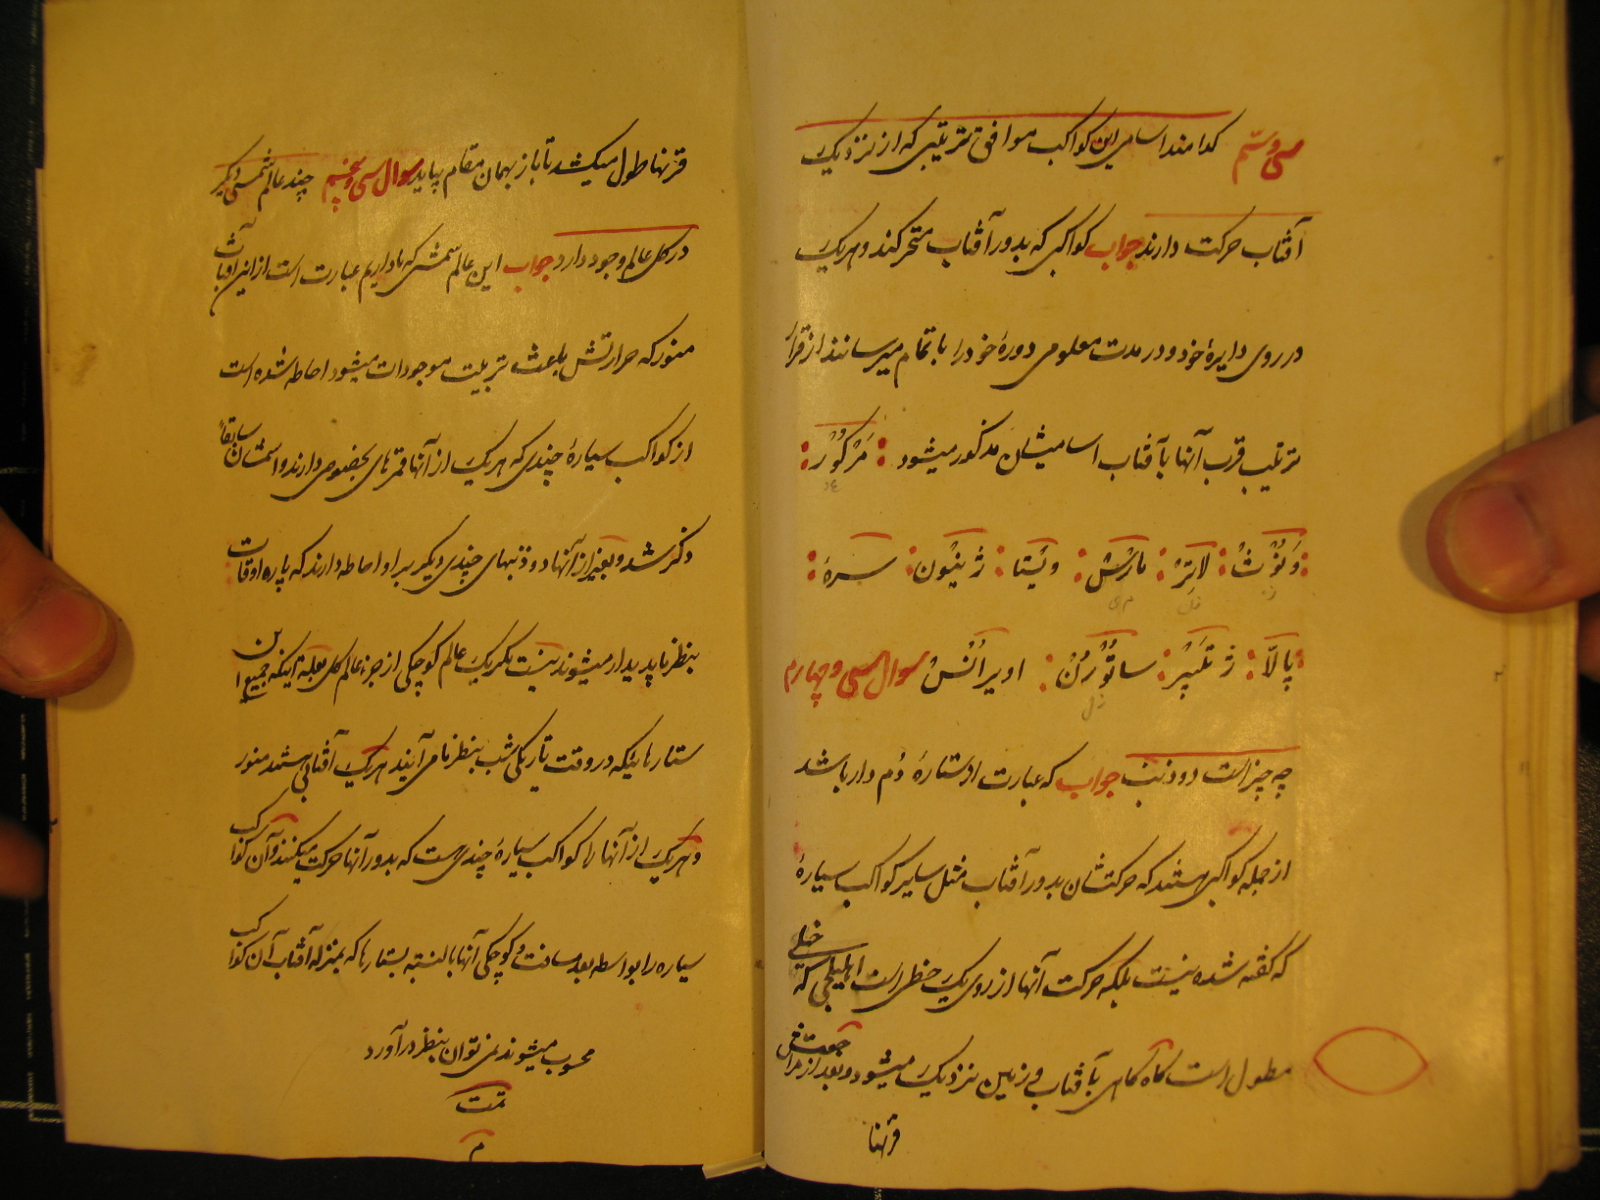 سی و سیم کدامند اسامی این کواکب موافق ترتیبی که از نزدیک
آفتاب حرکت دارند جواب کواکبی که بدور آفتاب متحرکند و هریک
در روی دایرهٔ خود و در مدت معلومی دورهٔ خود را باتمام میرسانند از قرار
ترتیب قرب آنها بآفتاب اسامیشان مذکور میشود : مَرْکُورْ :
: وَنُوْثْ : لاتِرْ : مارْسْ : وِیْستا : ژنیُون : سِرهٔ :
: پالّا : ژُ تَپِیرْ : ساتُورْنْ : اویرانُسْ سوال سی و چهارم
چه چیز است دوذنب جواب که عبارت از ستارهٔ دُم دار باشد
از جمله کواکبی هستند که حرکتشان بدور آفتاب مثل سایر کواکب سیارهٔ
که گفته شده نیست بلکه حرکت آنها از روی یک خطی است اهلیلجی که خیلی
مطول است گاه گاهی بآفتاب و زمین نزدیک میشود و بعد از مراجعتش
قرنها
قرنها طول میکشد تا باز بهمان مقام بیاید سوال سی و پنجم چند عالم شمسی دیگر
در کل عالم وجود دارد جواب این عالم شمسی که ما داریم عبارت است از این آفتاب
منور که حرارتش باعث تربیت موجودات میشود احاطه شده است
از کواکب سیارهٔ چندی که هریک از آنها قمرهای بخصوصی دارند و اسمشان سابقاً
ذکر شد و بغیر از آنها دوذنبهای چندی دیگر بر او احاطه دارند که پاره اوقات
بنظر ما پدیدار میشوند نیست مگر یک عالم کوچکی از جزء عالم کل بعلهٔ اینکه جمیع این
ستارهائیکه در وقت تاریکی شب بنظر ما می آیند هریک آفتابی هستند منور
و هریک از آنها را کواکب سیارهٔ چندی هست که بدور آنها حرکت میکنند و آن کواکب
سیاره را بواسطه بعد مسافت و کوچکی آنها بالنسبه بستارها که بمنزله آفتاب آن کواکب
محسوب میشوند نمی توان بنظر درآورد
تمت
م